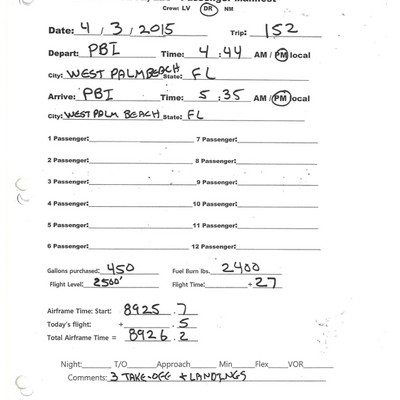 Passenger Manifest
Crew: LV DR NM
Date: 4 / 3 / 2015 Trip: 152
Depart: PBI Time: 4 :44 AM / PM local
City: WEST PALM BEACH State: FL
Arrive: PBI Time: 5 :35 AM / PM local
City: WEST PALM BEACH State: FL
1 Passenger: 7 Passenger:
2 Passenger: 8 Passenger:
3 Passenger: 9 Passenger:
4 Passenger: 10 Passenger:
5 Passenger: 11 Passenger:
6 Passenger: 12 Passenger:
Gallons purchased: 450 Fuel Burn lbs. 2400
Flight Level: 2500' Flight Time: + 27
Airframe Time: Start: 8925 .7
Today's flight: + .5
Total Airframe Time = 8926 .2
Night: T/O Approach Min Flex VOR
Comments: 3 TAKE-OFF + LANDINGS